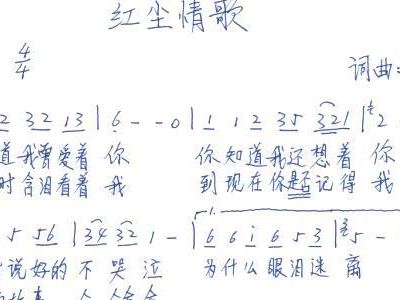 红尘情歌
4/4
词曲:
2 32 13 | 6 - - 0 | 1 1 2 35 321 | 2
道我曾爱着 你 你知道我还想着 你
时含泪看着 我 到现在你是否记得 我
1.
5 56 | 34 32 1 - | 6 6 i 6 5 3 | 5 -
说好的 不 哭 泣 为什么眼泪迷 离